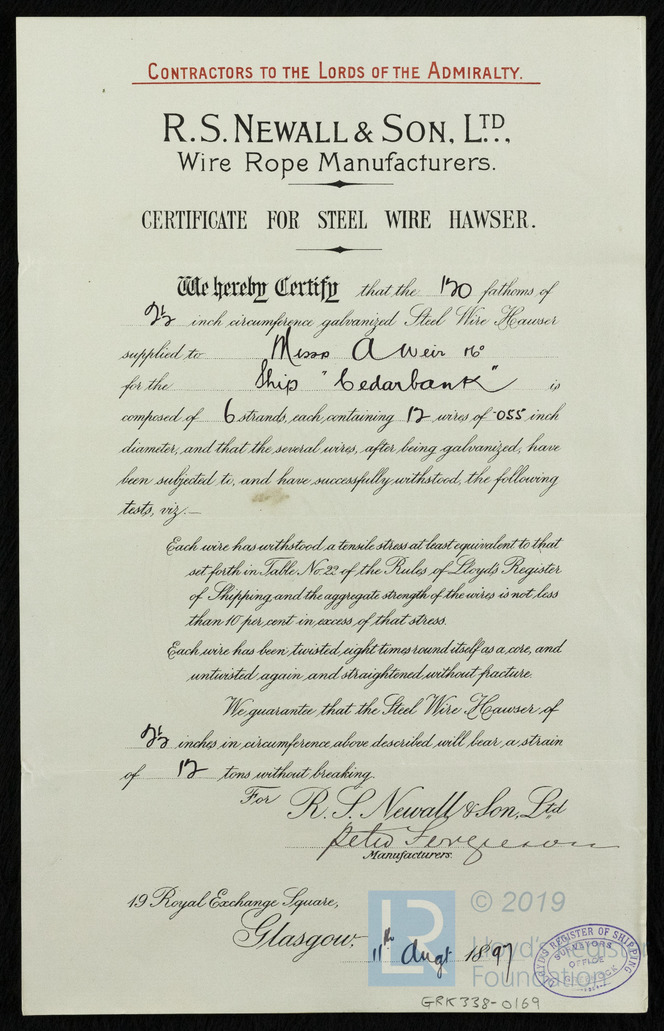 CONTRACTORS TO THE LORDS OF THE ADMIRALTY.
R.S. NEWALL & SON, LTD.,
Wire Rope Manufacturers.
CERTIFICATE FOR STEEL WIRE HAWSER.
We hereby Certify that the 120 fathoms of
2½ inch circumference galvanized Steel Wire Hawser
supplied to Messrs A Weir & Co
for the Ship "Cedarbank" is
composed of 6 strands, each containing 12 wires of .055 inch
diameter, and that the several wires, after being galvanized, have
been subjected to, and have successfully withstood, the following
tests, viz:—
Each wire has withstood a tensile stress at least equivalent to that
set forth in Table No. 22 of the Rules of Lloyd's Register
of Shipping, and the aggregate strength of the wires is not less
than 10 per cent in excess of that stress.
Each wire has been twisted eight times round itself as a core, and
untwisted again and straightened without fracture.
We guarantee that the Steel Wire Hawser of
2½ inches in circumference above described will bear a strain
of 12 tons without breaking.
For R. S. Newall & Son, Ltd
Peter Ferguson
Manufacturers.
19 Royal Exchange Square,
Glasgow, 11th Augt 1897
LR © 2019
Lloyd's Register
Foundation
LLOYD'S REGISTER OF SHIPPING
SURVEYORS
OFFICE
GRK338-0169